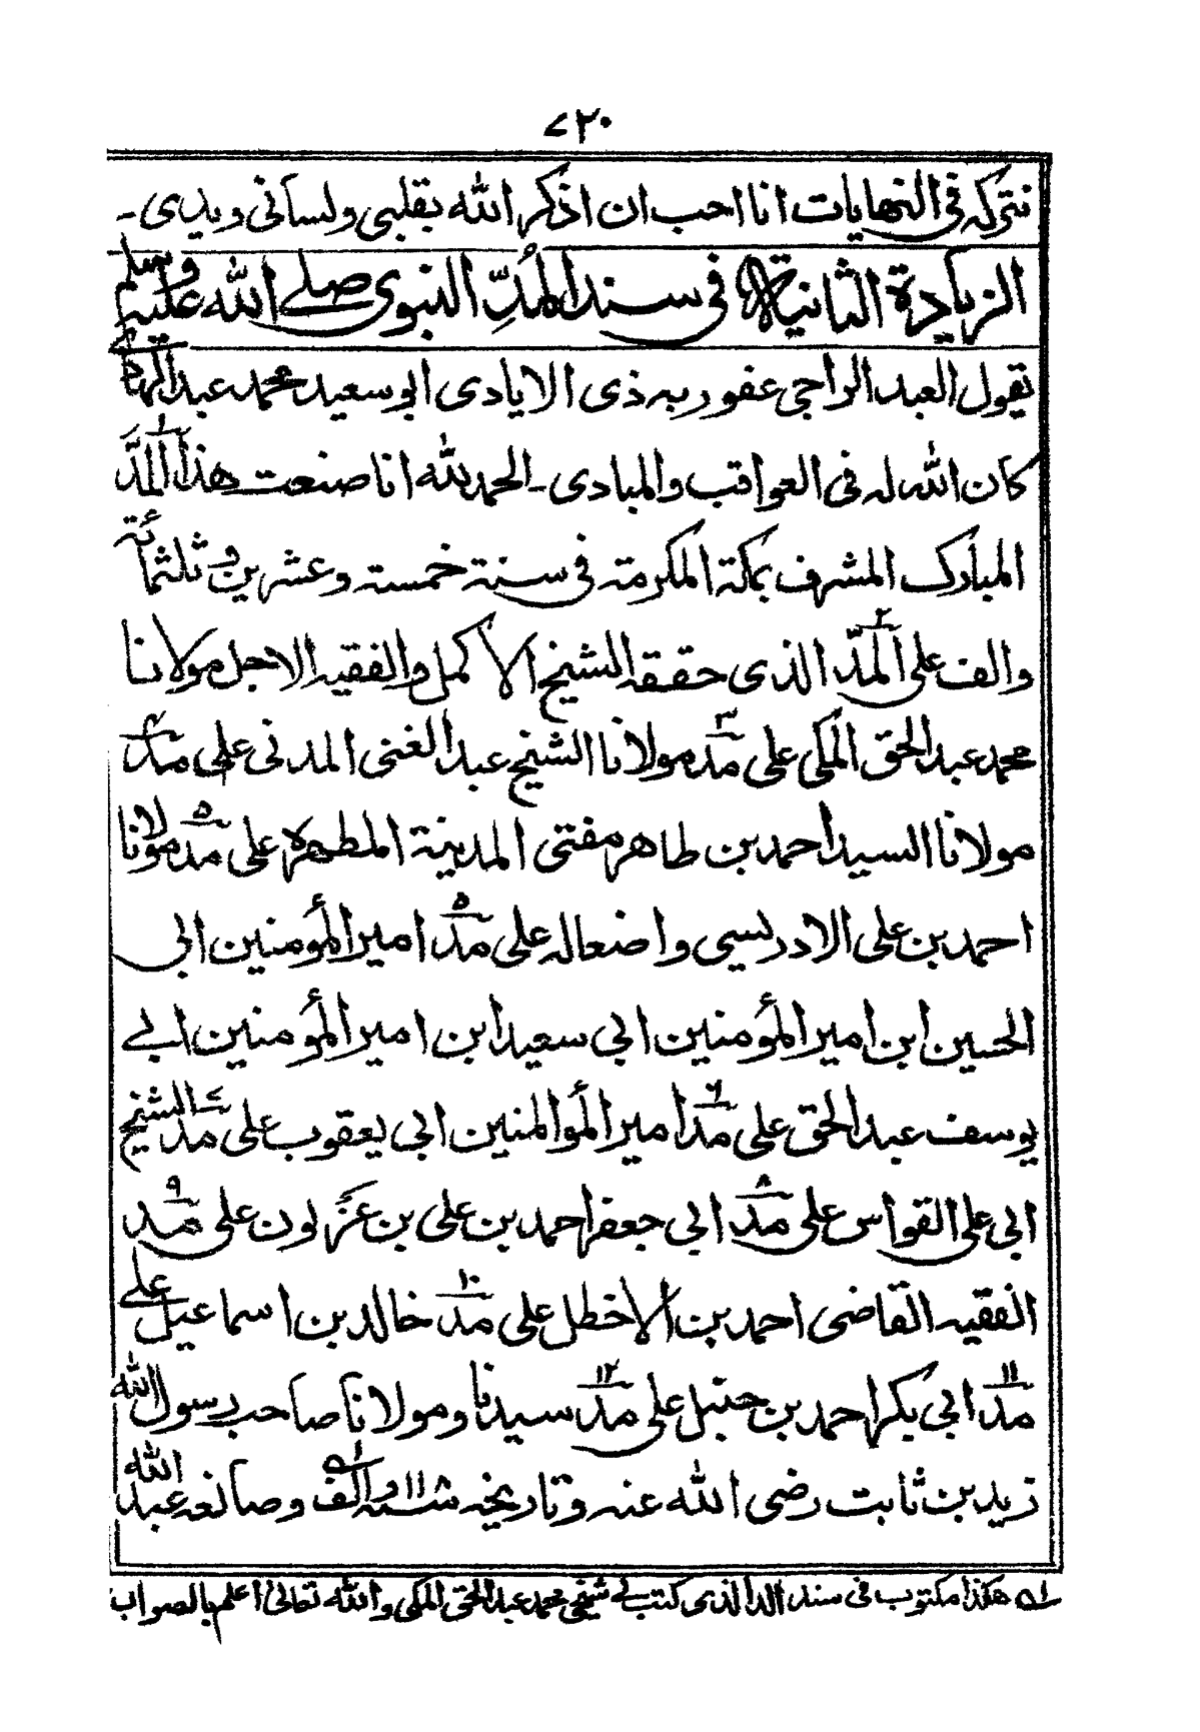 ٧٢٠
نتركه في النهايات انا احب ان اذكر الله بقلبي ولساني ويدي -
الزيادة الثانية في سند المُدِّ النبوي صلے الله عليه وسلم
يقول العبد الراجي عفو ربه ذي الايادي ابو سعيد محمد عبد الهادي
كان الله له في العواقب والمبادي - الحمد لله انا صنعت هذا المدَّ ١
المبارك المشرف بمكة المكرمة في سنة خمسة وعشرين وثلثمائة
والف على المدّ ٢ الذي حققه الشيخ الاكمل والفقيه الاجل مولانا
محمد عبد الحق المكي على مدّ ٣ مولانا الشيخ عبد الغني المدني على مدّ ٤
مولانا السيد احمد بن طاهر مفتي المدينة المطهرة على مدّ ٥ مولانا
احمد بن على الادريسي واضعاله على مدّ ٥ امير المؤمنين ابي
الحسين ابن امير المؤمنين ابي سعيد ابن امير المؤمنين ابے
يوسف عبد الحق على مدّ ٦ امير المؤالمنين ابي يعقوب على مدّ ٧ الشيخ
ابي على القواس على مدّ ٨ ابي جعفر احمد بن على بن عَزلون على مدّ ٩
الفقيه القاضي احمد بن الاخطل على مدّ ١٠ خالد بن اسماعيل علے
مدّ ١١ ابي بكر احمد بن حنبل على مدّ ١٢ سيدنا ومولانا صاحب رسول الله
زيد بن ثابت رضي الله عنه وتاريخه سنة ١١٨ والف وصانعه عبد الله
هكذا مكتوب في سند المد الذي كتب لے شيخي محمد عبد الحق المكي والله تعالى اعلم بالصواب